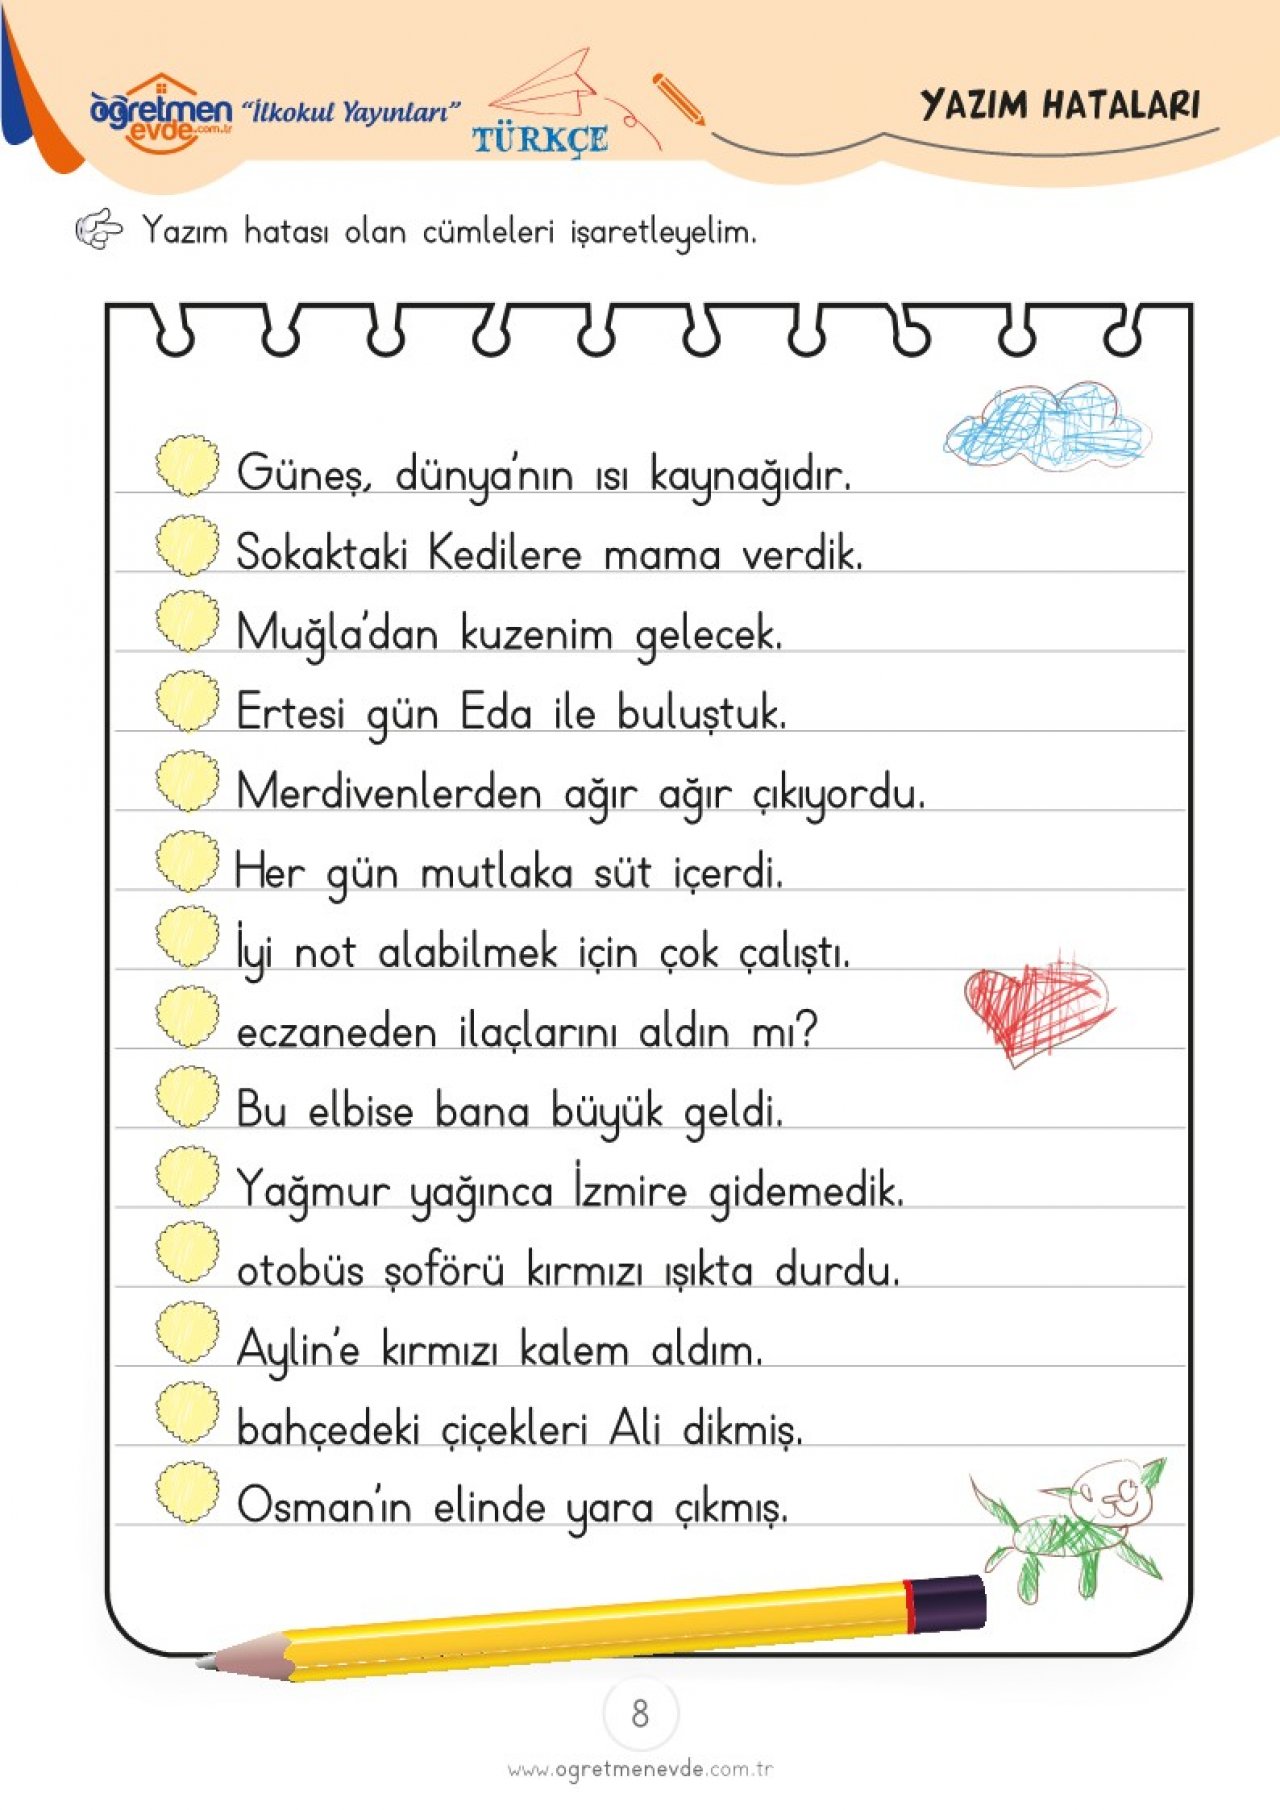 öğretmen
evde.com.tr
"İlkokul Yayınları"
TÜRKÇE
YAZIM HATALARI
Yazım hatası olan cümleleri işaretleyelim.
Güneş, dünya'nın ısı kaynağıdır.
Sokaktaki Kedilere mama verdik.
Muğla'dan kuzenim gelecek.
Ertesi gün Eda ile buluştuk.
Merdivenlerden ağır ağır çıkıyordu.
Her gün mutlaka süt içerdi.
İyi not alabilmek için çok çalıştı.
eczaneden ilaçlarını aldın mı?
Bu elbise bana büyük geldi.
Yağmur yağınca İzmire gidemedik.
otobüs şoförü kırmızı ışıkta durdu.
Aylin'e kırmızı kalem aldım.
bahçedeki çiçekleri Ali dikmiş.
Osman'ın elinde yara çıkmış.
8
www.ogretmenevde.com.tr